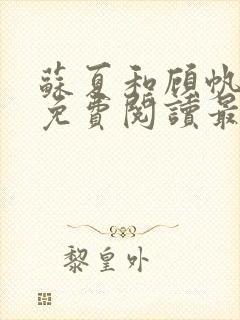 蘇夏和顧帆
免費閱讀最
黎皇外